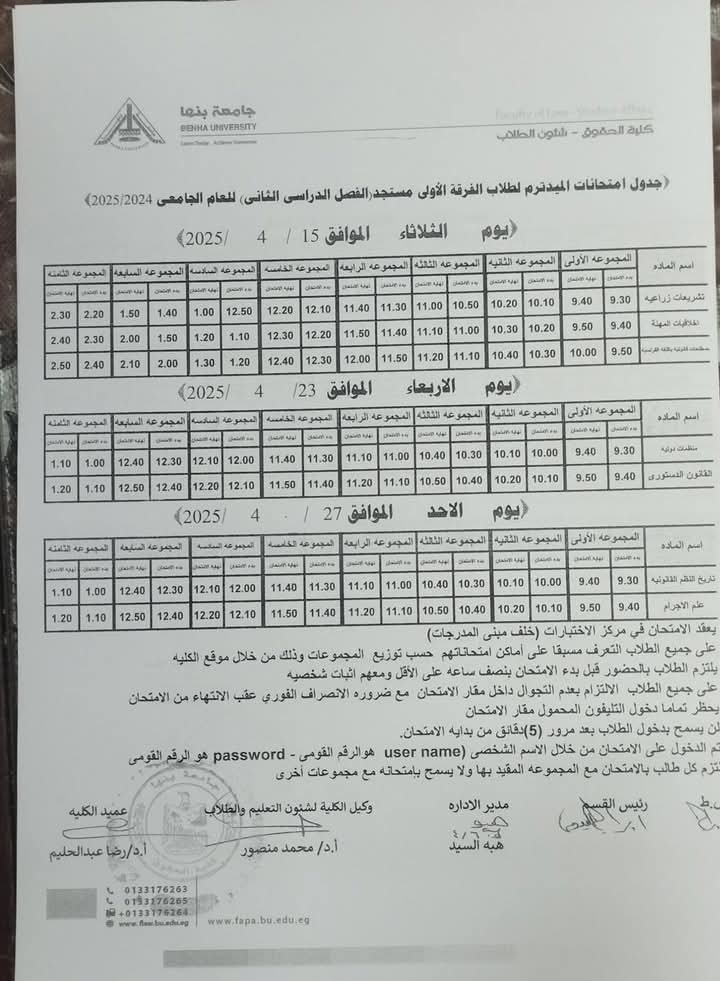 جامعة بنها
BENHA UNIVERSITY
كلية الحقوق - شئون الطلاب
(جدول امتحانات الميدترم لطلاب الفرقة الأولى مستجد (الفصل الدراسى الثانى) للعام الجامعى 2025/2024)
(يوم الثلاثاء الموافق 15 / 4 /2025)
اسم الماده المجموعه الأولى المجموعه الثانيه المجموعه الثالثه المجموعه الرابعه المجموعه الخامسه المجموعه السادسه المجموعه السابعه المجموعه الثامنه
بدء الامتحان نهاية الامتحان بدء الامتحان نهاية الامتحان بدء الامتحان نهاية الامتحان بدء الامتحان نهاية الامتحان بدء الامتحان نهاية الامتحان بدء الامتحان نهاية الامتحان بدء الامتحان نهاية الامتحان بدء الامتحان نهاية الامتحان
تشريعات زراعيه 9.30 9.40 10.10 10.20 10.50 11.00 11.30 11.40 12.10 12.20 12.50 1.00 1.40 1.50 2.20 2.30
اخلاقيات المهنة 9.40 9.50 10.20 10.30 11.00 11.10 11.40 11.50 12.20 12.30 1.10 1.20 1.50 2.00 2.30 2.40
مصطلحات قانونية باللغه الفرنسية 9.50 10.00 10.30 10.40 11.10 11.20 11.50 12.00 12.30 12.40 1.20 1.30 2.00 2.10 2.40 2.50
(يوم الاربعاء الموافق 23/ 4 /2025)
اسم الماده المجموعه الأولى المجموعه الثانيه المجموعه الثالثه المجموعه الرابعه المجموعه الخامسه المجموعه السادسه المجموعه السابعه المجموعه الثامنه
بدء الامتحان نهاية الامتحان بدء الامتحان نهاية الامتحان بدء الامتحان نهاية الامتحان بدء الامتحان نهاية الامتحان بدء الامتحان نهاية الامتحان بدء الامتحان نهاية الامتحان بدء الامتحان نهاية الامتحان بدء الامتحان نهاية الامتحان
منظمات دوليه 9.30 9.40 10.00 10.10 10.30 10.40 11.00 11.10 11.30 11.40 12.00 12.10 12.30 12.40 1.00 1.10
القانون الدستورى 9.40 9.50 10.10 10.20 10.40 10.50 11.10 11.20 11.40 11.50 12.10 12.20 12.40 12.50 1.10 1.20
(يوم الاحد الموافق 27 / 4 /2025)
اسم الماده المجموعه الأولى المجموعه الثانيه المجموعه الثالثه المجموعه الرابعه المجموعه الخامسه المجموعه السادسه المجموعه السابعه المجموعه الثامنه
بدء الامتحان نهاية الامتحان بدء الامتحان نهاية الامتحان بدء الامتحان نهاية الامتحان بدء الامتحان نهاية الامتحان بدء الامتحان نهاية الامتحان بدء الامتحان نهاية الامتحان بدء الامتحان نهاية الامتحان بدء الامتحان نهاية الامتحان
تاريخ النظم القانونيه 9.30 9.40 10.00 10.10 10.30 10.40 11.00 11.10 11.30 11.40 12.00 12.10 12.30 12.40 1.00 1.10
علم الاجرام 9.40 9.50 10.10 10.20 10.40 10.50 11.10 11.20 11.40 11.50 12.10 12.20 12.40 12.50 1.10 1.20
يعقد الامتحان في مركز الاختبارات (خلف مبنى المدرجات)
على جميع الطلاب التعرف مسبقا على أماكن امتحاناتهم حسب توزيع المجموعات وذلك من خلال موقع الكليه
يلتزم الطلاب بالحضور قبل بدء الامتحان بنصف ساعه على الأقل ومعهم اثبات شخصيه
على جميع الطلاب الالتزام بعدم التجوال داخل مقار الامتحان مع ضروره الانصراف الفوري عقب الانتهاء من الامتحان
يحظر تماما دخول التليفون المحمول مقار الامتحان
لن يسمح بدخول الطلاب بعد مرور (5)دقائق من بدايه الامتحان.
تم الدخول على الامتحان من خلال الاسم الشخصى (user name هوالرقم القومى - password هو الرقم القومى
لتزم كل طالب بالامتحان مع المجموعه المقيد بها ولا يسمح بإمتحانه مع مجموعات أخرى
رئيس القسم مدير الاداره وكيل الكلية لشئون التعليم والطلاب عميد الكليه
هبه السيد أ.د/ محمد منصور أ.د/رضا عبدالحليم
0133176263
0133176265
+0133176264
www.flaw.bu.edu.eg www.fapa.bu.edu.eg